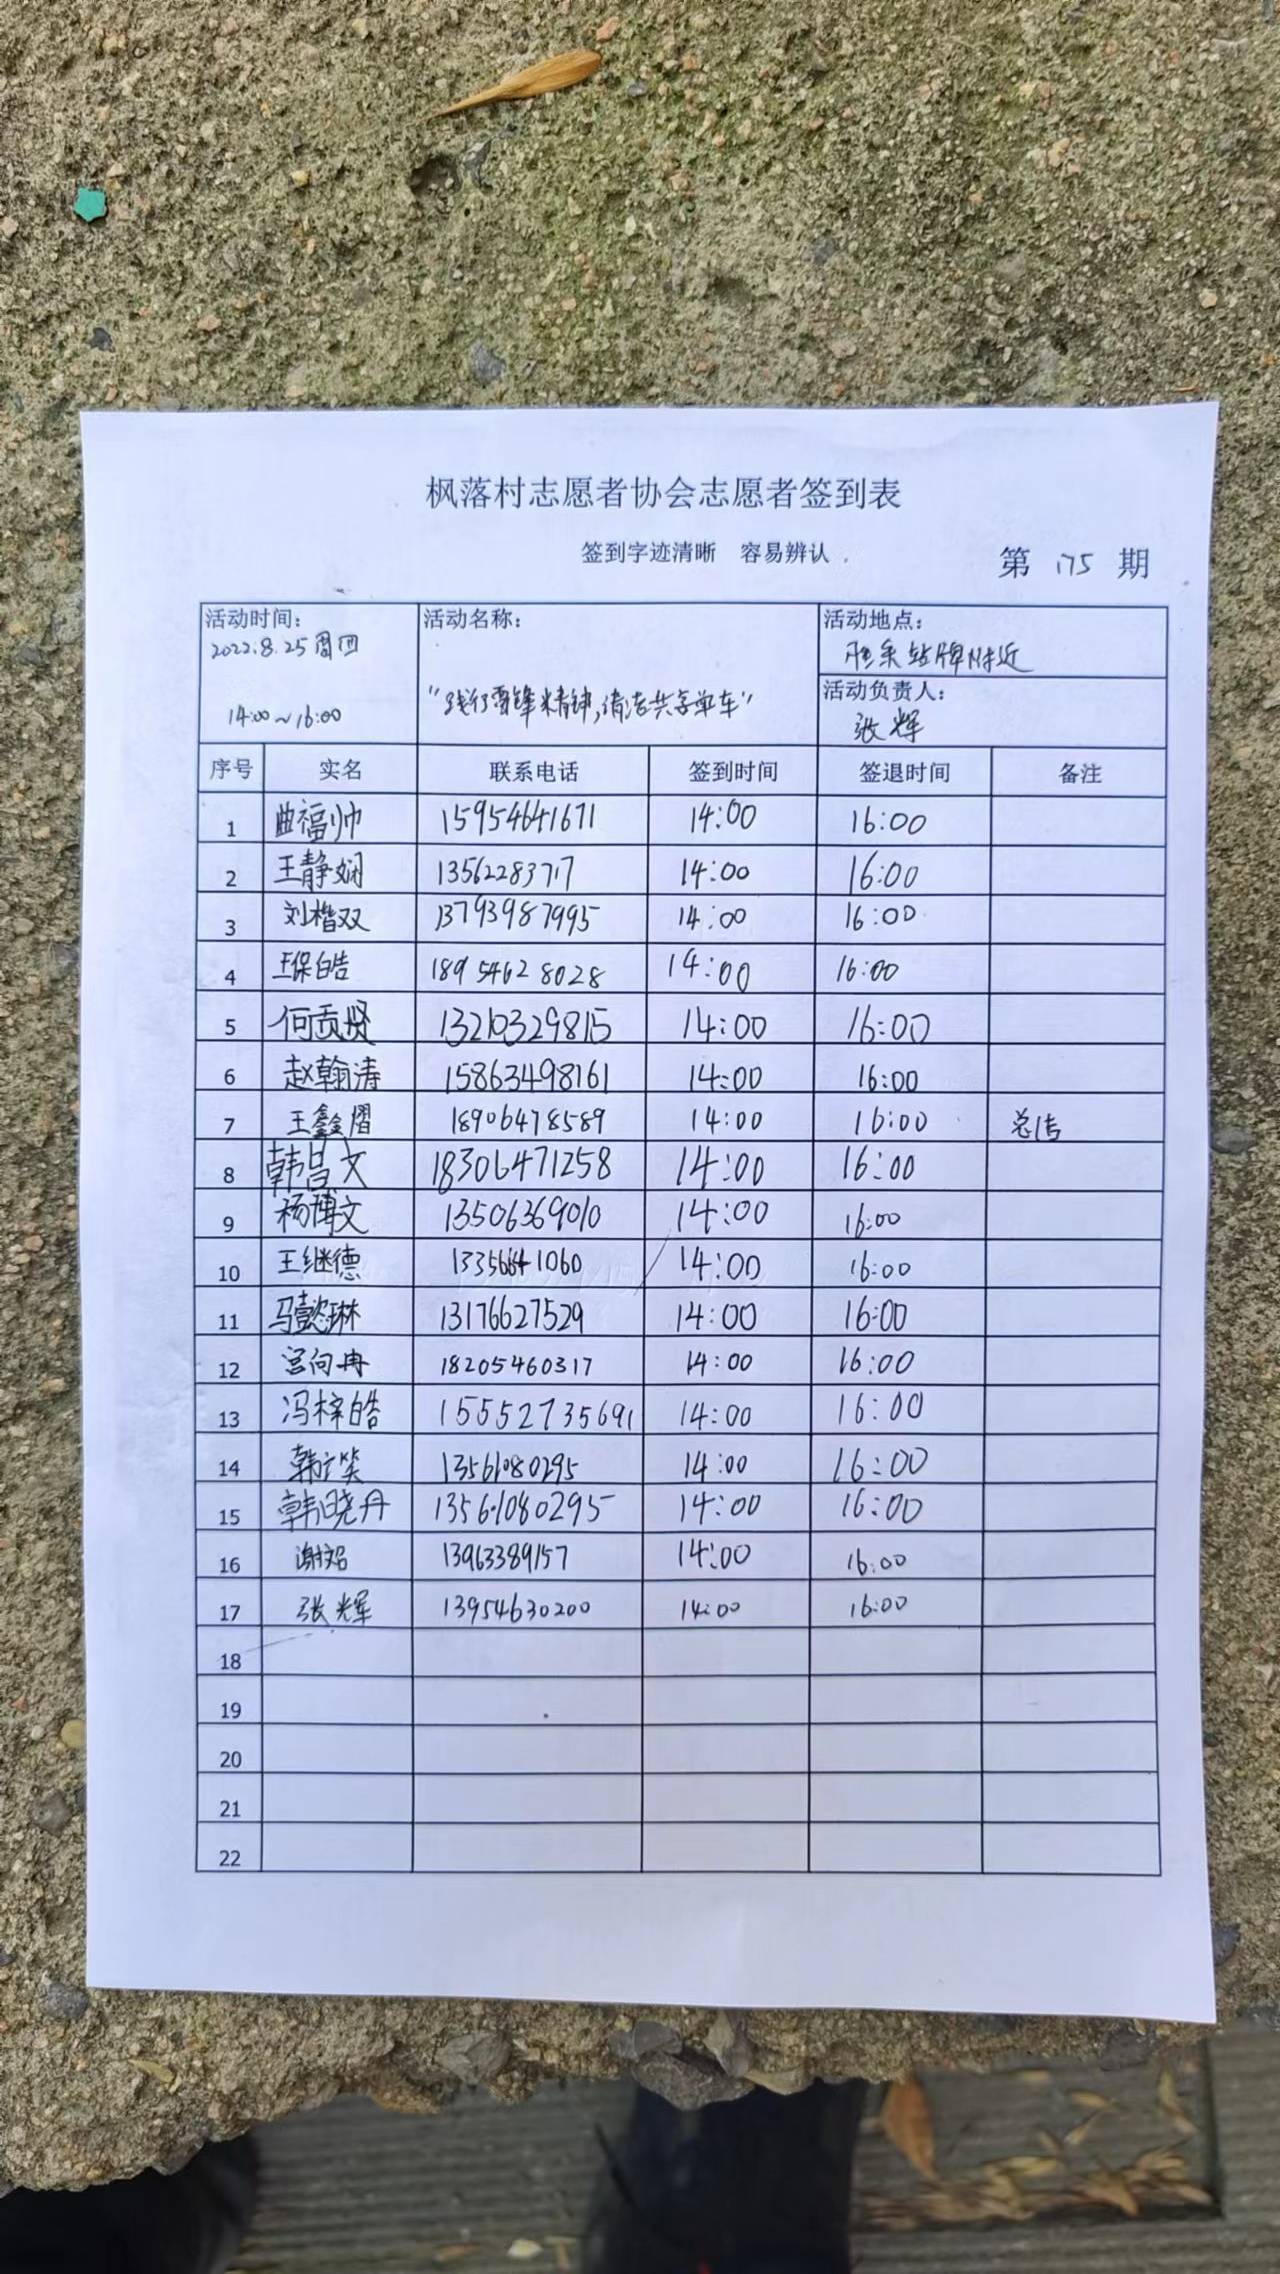 枫落村志愿者协会志愿者签到表
签到字迹清晰 容易辨认
第 175 期
活动时间: 2022.8.25 周四 14:00~16:00
活动名称: "践行雷锋精神,清洁共享单车"
活动地点: 胜采站牌附近
活动负责人: 张辉
序号 实名 联系电话 签到时间 签退时间 备注
1 曲福帅 15954641671 14:00 16:00
2 王静娴 13562283717 14:00 16:00
3 刘楷双 13793987995 14:00 16:00
4 王保皓 18954628028 14:00 16:00
5 何贡贤 13210329815 14:00 16:00
6 赵翰涛 15863498161 14:00 16:00
7 王鑫熠 18906478589 14:00 16:00
8 韩昌文 18306471258 14:00 16:00
9 杨博文 13506369010 14:00 16:00
10 王继德 14:00 16:00
11 马懿琳 13176627529 14:00 16:00
12 宫向冉 18205460317 14:00 16:00
13 冯梓皓 15552735691 14:00 16:00
14 13561080295 14:00 16:00
15 韩晓丹 13561080295 14:00 16:00
16 13963389157 14:00 16:00
17 张辉 13954630200 14:00 16:00
18
19
20
21
22